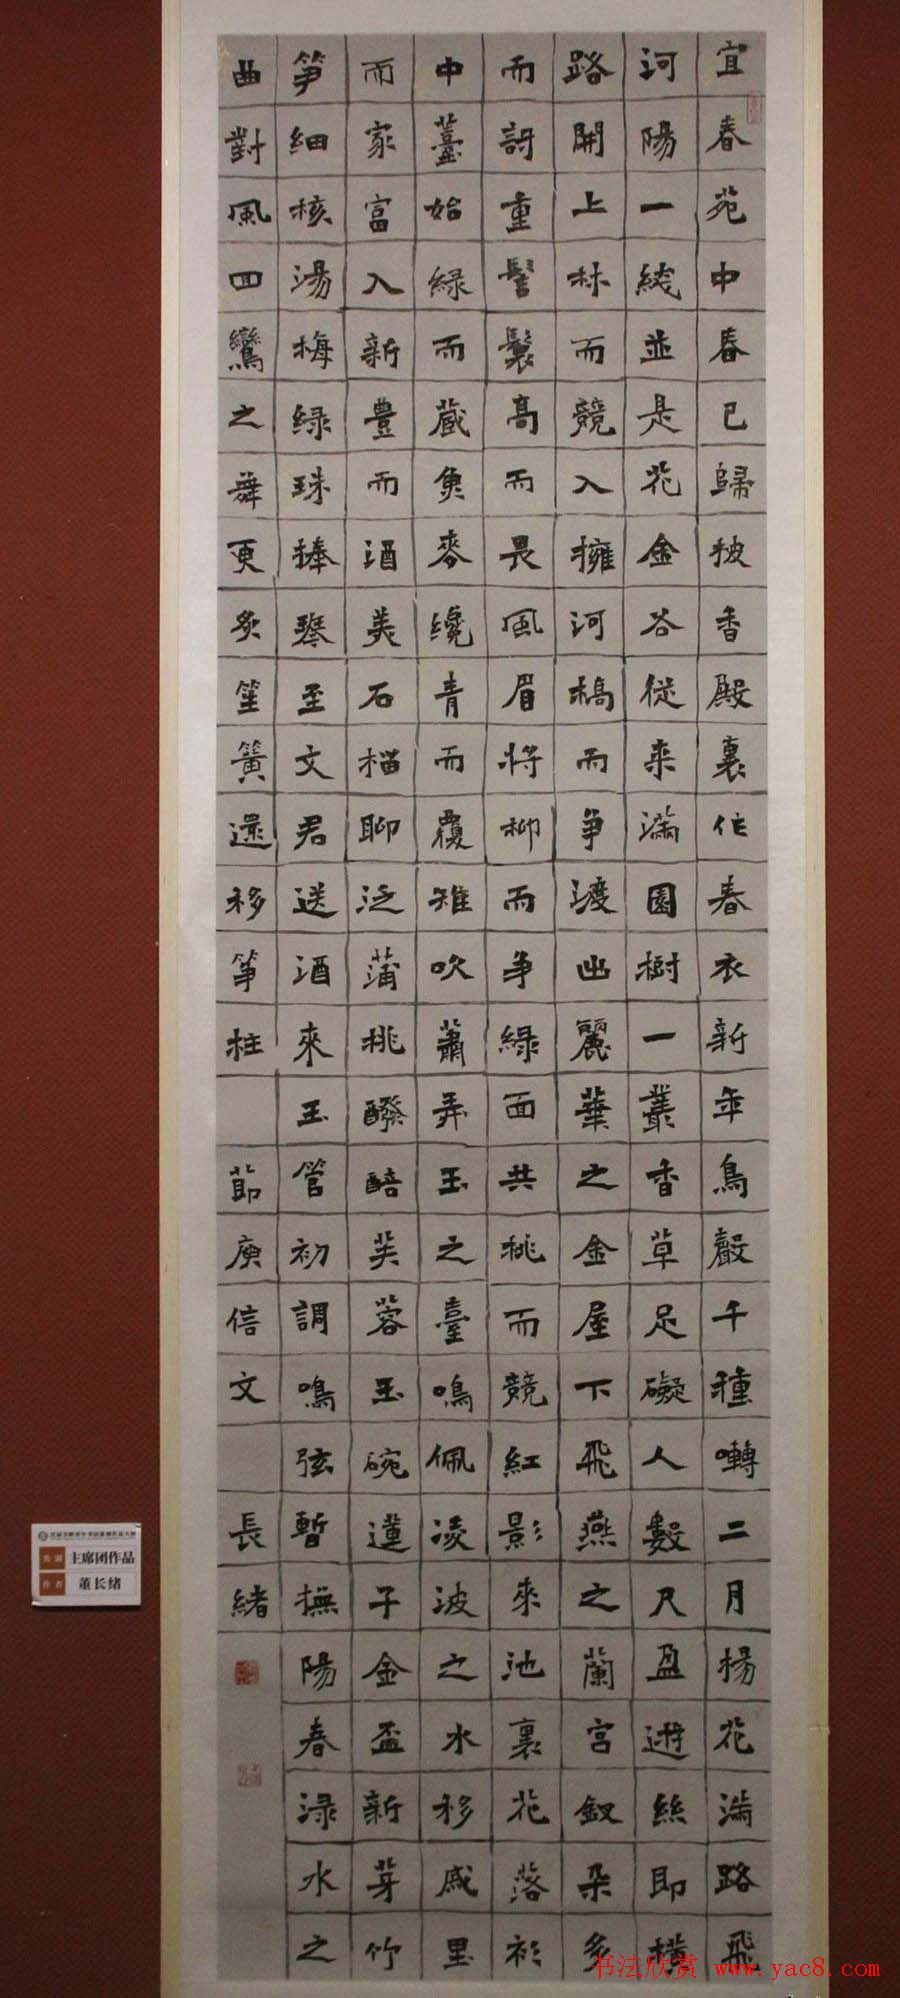 宜春苑中春已歸披香殿裏作春衣新年鳥聲千種囀二月楊花滿路飛
河陽一縣並是花金谷從來滿園樹一叢香草足礙人數尺遊絲即橫
路開上林而競入擁河橋而爭渡出麗華之金屋下飛燕之蘭宮釵朵多
而訝重髻鬟高而畏風眉將柳而爭綠面共桃而競紅影來池裏花落衫
中薹始綠而藏魚麥纔青而覆雉吹蕭弄玉之臺鳴佩凌波之水移戚里
而家富入新豊而酒美石榴聊泛蒲桃醱醅芙蓉玉碗蓮子金盃新芽竹
筍細核湯梅绿珠捧琴至文君送酒來玉管初調鳴弦暫撫陽春淥水之
曲對風回鸞之舞更炙笙簧還移箏柱 節庾信文 長緒
主席团作品
作者 董长绪
书法欣赏 www.yac8.com